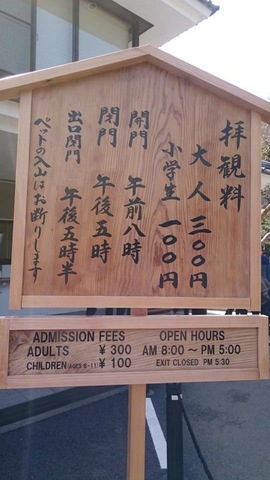 拝観料
大人 三〇〇円
小学生 一〇〇円
開門 午前八時
閉門 午後五時
出口閉門 午後五時半
ペットの入山はお断りします
ADMISSION FEES
ADULTS ¥ 300
CHILDREN (AGES 6-11) ¥ 100
OPEN HOURS
AM 8:00 ～ PM 5:00
EXIT CLOSED PM 5:30